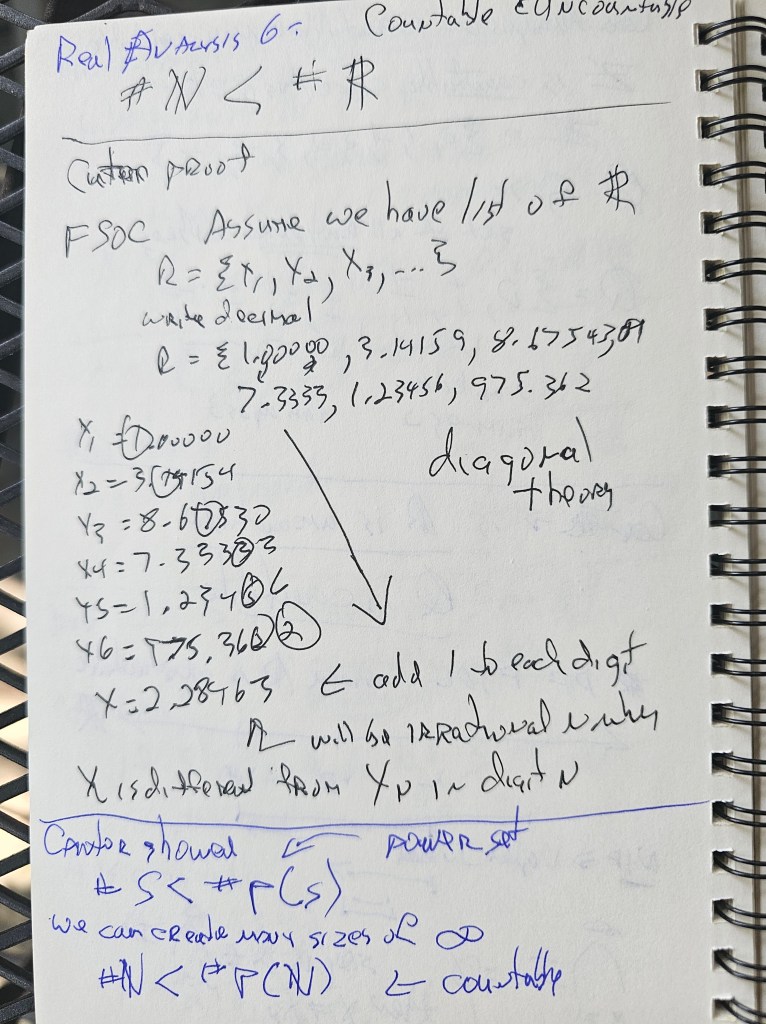 Real Analysis 6: Countable & Uncountable
# ℕ < # ℝ
Cantor proof
FSOC Assume we have list of ℝ
R = {X1, X2, X3, ...}
write decimal
R = {1.00000, 3.14159, 8.6754309
7.3333, 1.23456, 975.362
X1 = 1.00000
diagonal
theory
X2 = 3.14154
X3 = 8.67530
X4 = 7.33333
X5 = 1.23456
X6 = 975.3622
X = 2.28463 ← add 1 to each digit
will be irrational number
X is different from XN in digit N
Cantor showed ← power set
# S < # P(S)
We can create many sizes of ∞
#ℕ < # P(ℕ) ← countable